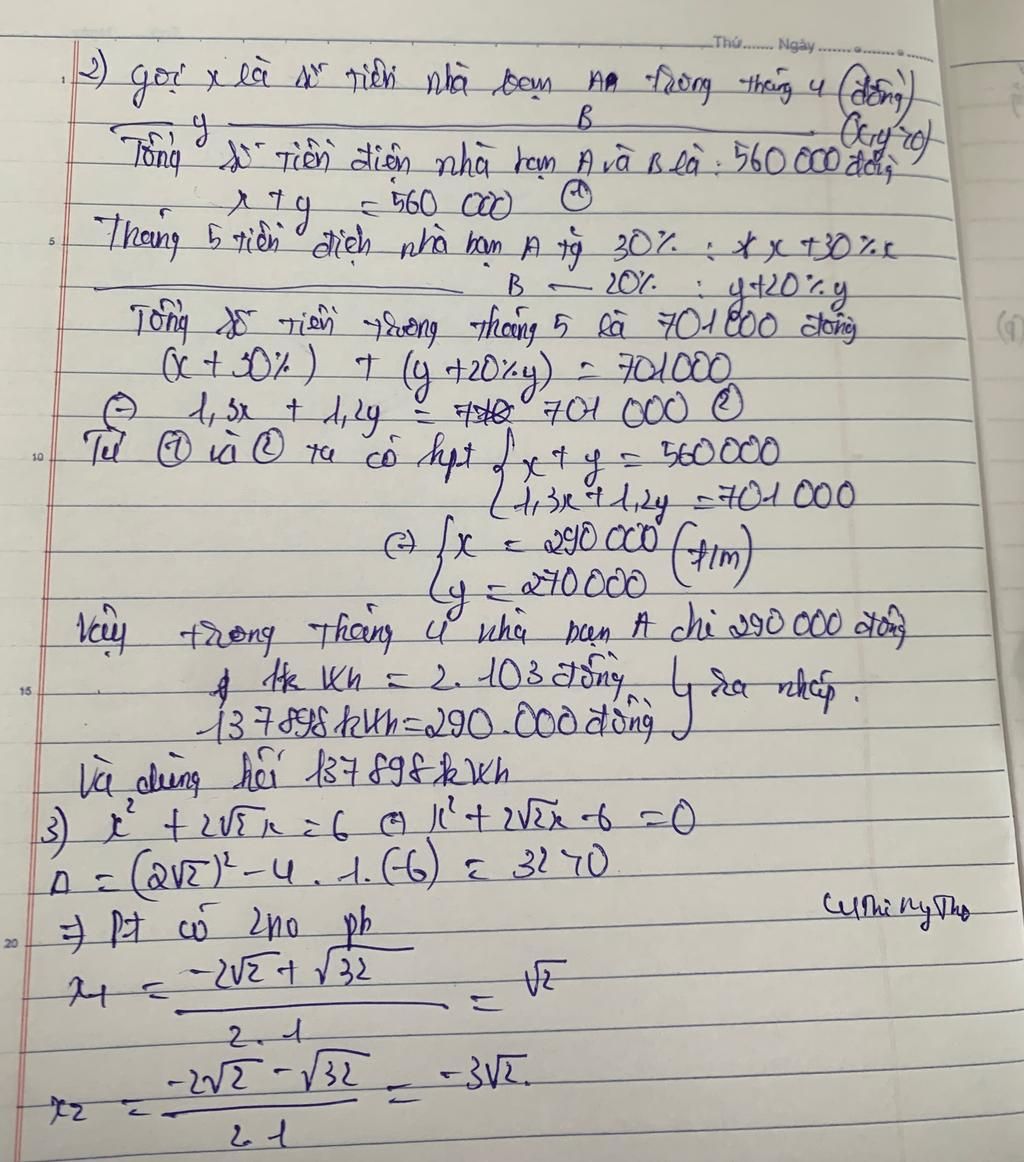 Thứ....... Ngày...............
2) gọi x là số tiền nhà bạn A trong tháng 4 (đồng)
y B (x,y>0)
Tổng số tiền điện nhà bạn A và B là : 560 000 đồng
x + y = 560 000 ①
5 Tháng 5 tiền điện nhà bạn A tg 30% : x + 30%x
B — 20% : y+20%y
Tổng số tiền trong tháng 5 là 701000 đồng
(x + 30%) + (y +20%y) = 701000
(=) 1,3x + 1,2y = 701 000 ②
10 Từ ① và ② ta có hpt { x + y = 560000
1,3x + 1,2y = 701 000
(=) { x = 290 000 (t/m)
y = 270000
Vậy trong tháng 4 nhà bạn A chi 290 000 đồng
15 1k Wh = 2.103 đồng
137 898 kWh = 290.000 đồng } ra nháp.
Và dùng hết 137 898 kWh
3) x² + 2√2x = 6 (=) x² + 2√2x - 6 = 0
Δ = (2√2)² - 4 . 1. (-6) = 32 > 0
20 => Pt có 2no pb
x1 = (-2√2 + √32) / (2.1) = √2
x2 = (-2√2 - √32) / (2.1) = -3√2.